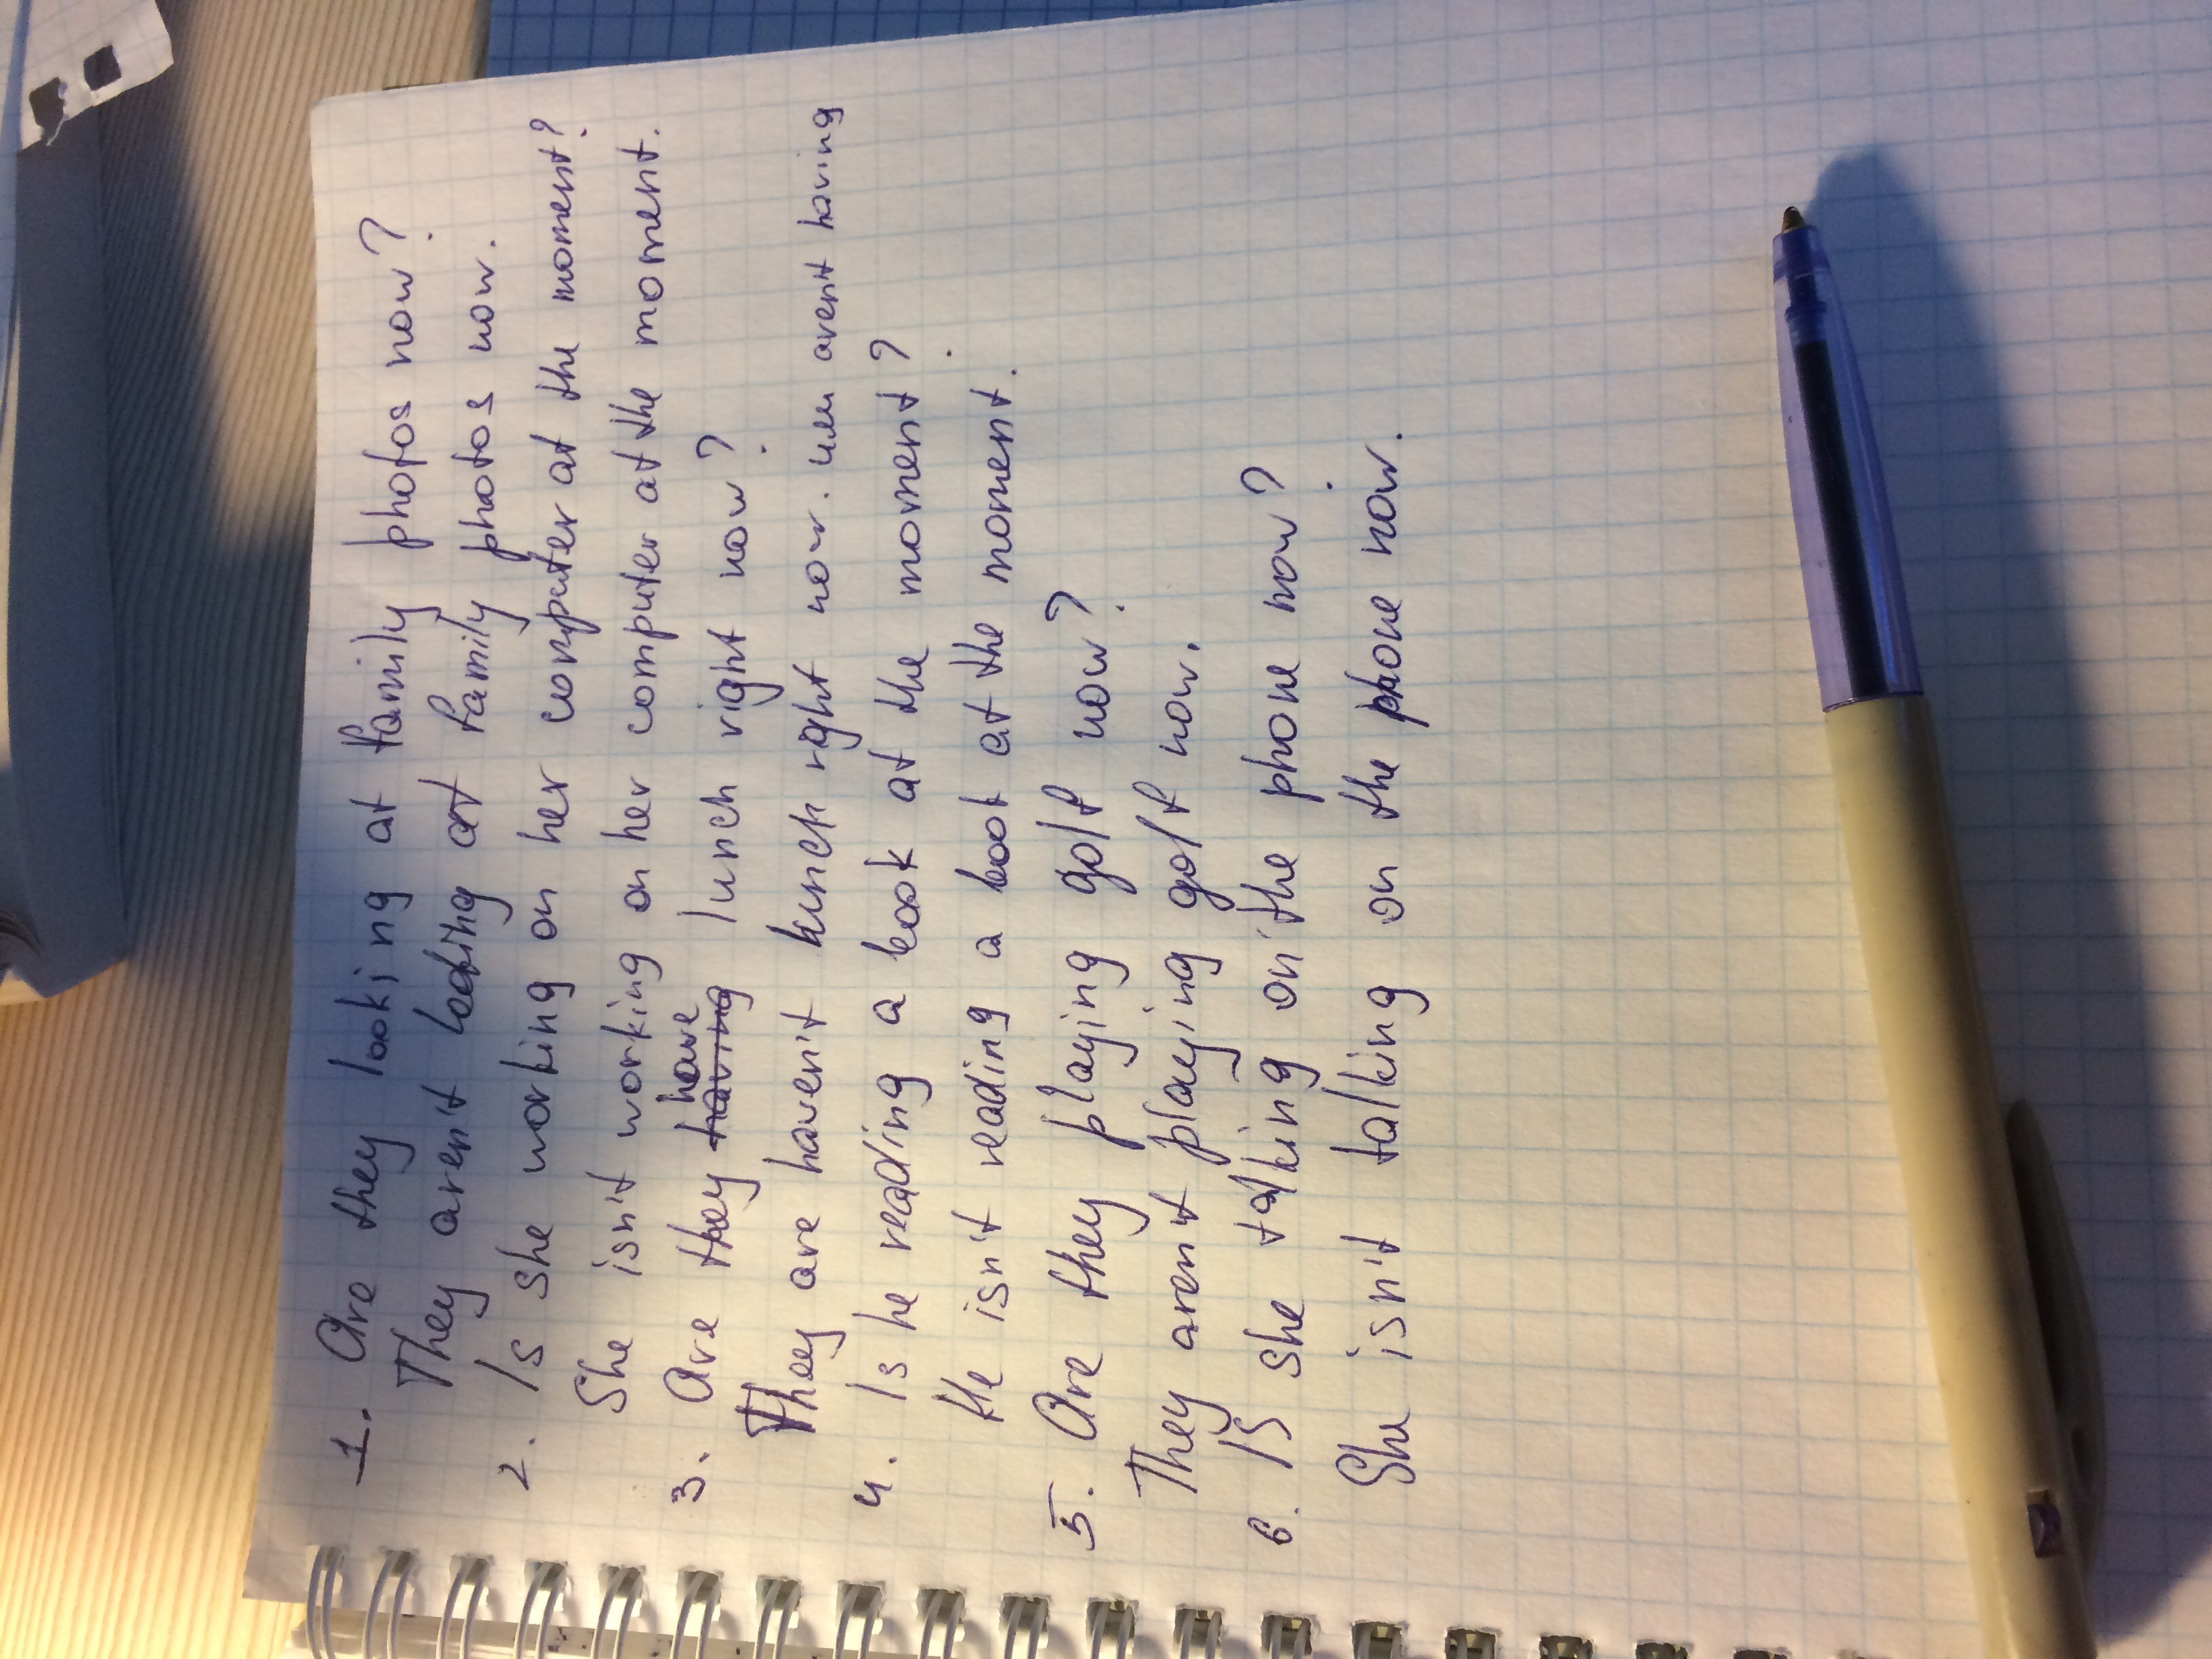 1. Are they looking at family photos now?
They aren't looking at family photos now.
2. Is she working on her computer at the moment?
She isn't working on her computer at the moment.
have
3. Are they having lunch right now?
They are haven't lunch right now. или aren't having
4. Is he reading a book at the moment?
He isn't reading a book at the moment.
5. Are they playing golf now?
They aren't playing golf now.
6. Is she talking on the phone now?
She isn't talking on the phone now.